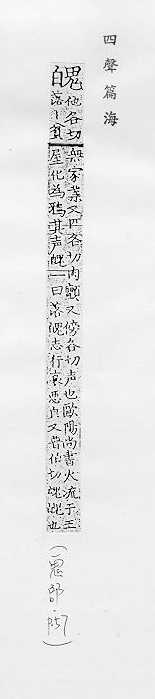 四聲篇海
魄 他各切無家業又匹各切肉顫又傍各切声也歐陽尚書火流于王
落〻貧屋化為鴉其声魄一曰落魄志行衰惡皃又普伯切魂魄也
(鬼部·